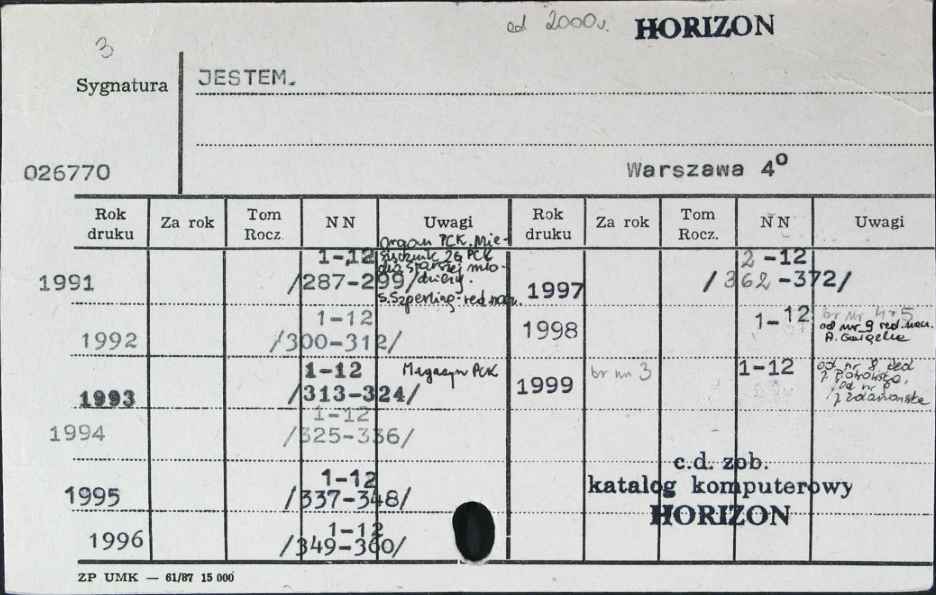 od 2000r. HORIZON
3
Sygnatura JESTEM.
026770
Warszawa 4º
Rok druku Za rok Tom Rocz. N N Uwagi Rok druku Za rok Tom Rocz. N N Uwagi
organ PCK. Mie-
sięcznik ZG PCK
dla starszej mło-
dzieży.
S. Szperling - red. nacz.
1991 1-12
/287-299/
1992 1-12
/300-312/
1993 1-12 Magazyn PCK
/313-324/
1994 1-12
/325-336/
1995 1-12
/337-348/
1996 1-12
/349-360/
1997 2-12
/362-372/
1998 1-12 br nr 4-5
od nr 9 red. nacz.
A.
1999 br nr 3 1-12 od nr 8 red
od nr
c.d. zob.
katalog komputerowy
HORIZON
ZP UMK — 61/87 15 000